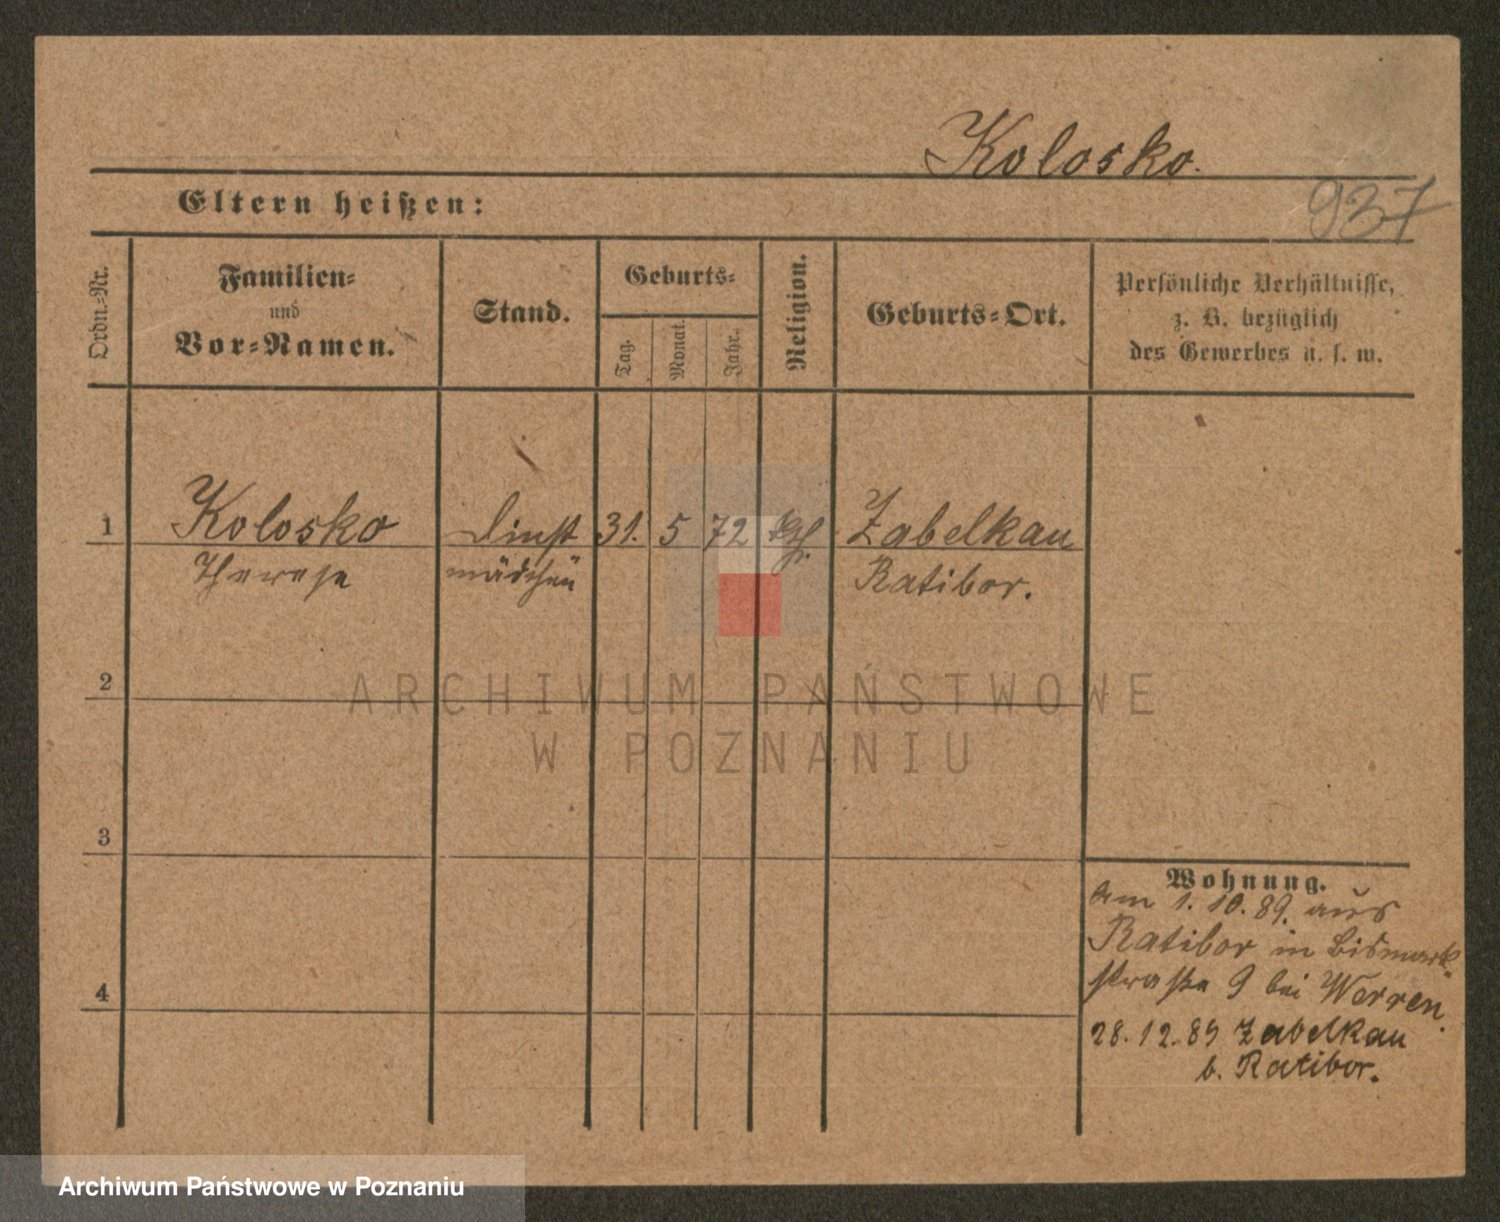 Kolosko.
Eltern heißen:
937
Ordn.-Nr.
Familien-
und
Vor-Namen.
Stand.
Geburts-
Tag.
Monat.
Jahr.
Religion.
Geburts-Ort.
Persönliche Verhältnisse,
z. B. bezüglich
des Gewerbes u. s. w.
1 Kolosko Dinst 31. 5 72 kth. Zabelkau
Therese mädchen Ratibor.
2
3
4
Wohnung.
Am 1. 10. 89. aus
Ratibor in Bismark
straße 9 bei Werren.
28. 12. 89 Zabelkau
b. Ratibor.
ARCHIWUM PAŃSTWOWE
W POZNANIU
Archiwum Państwowe w Poznaniu